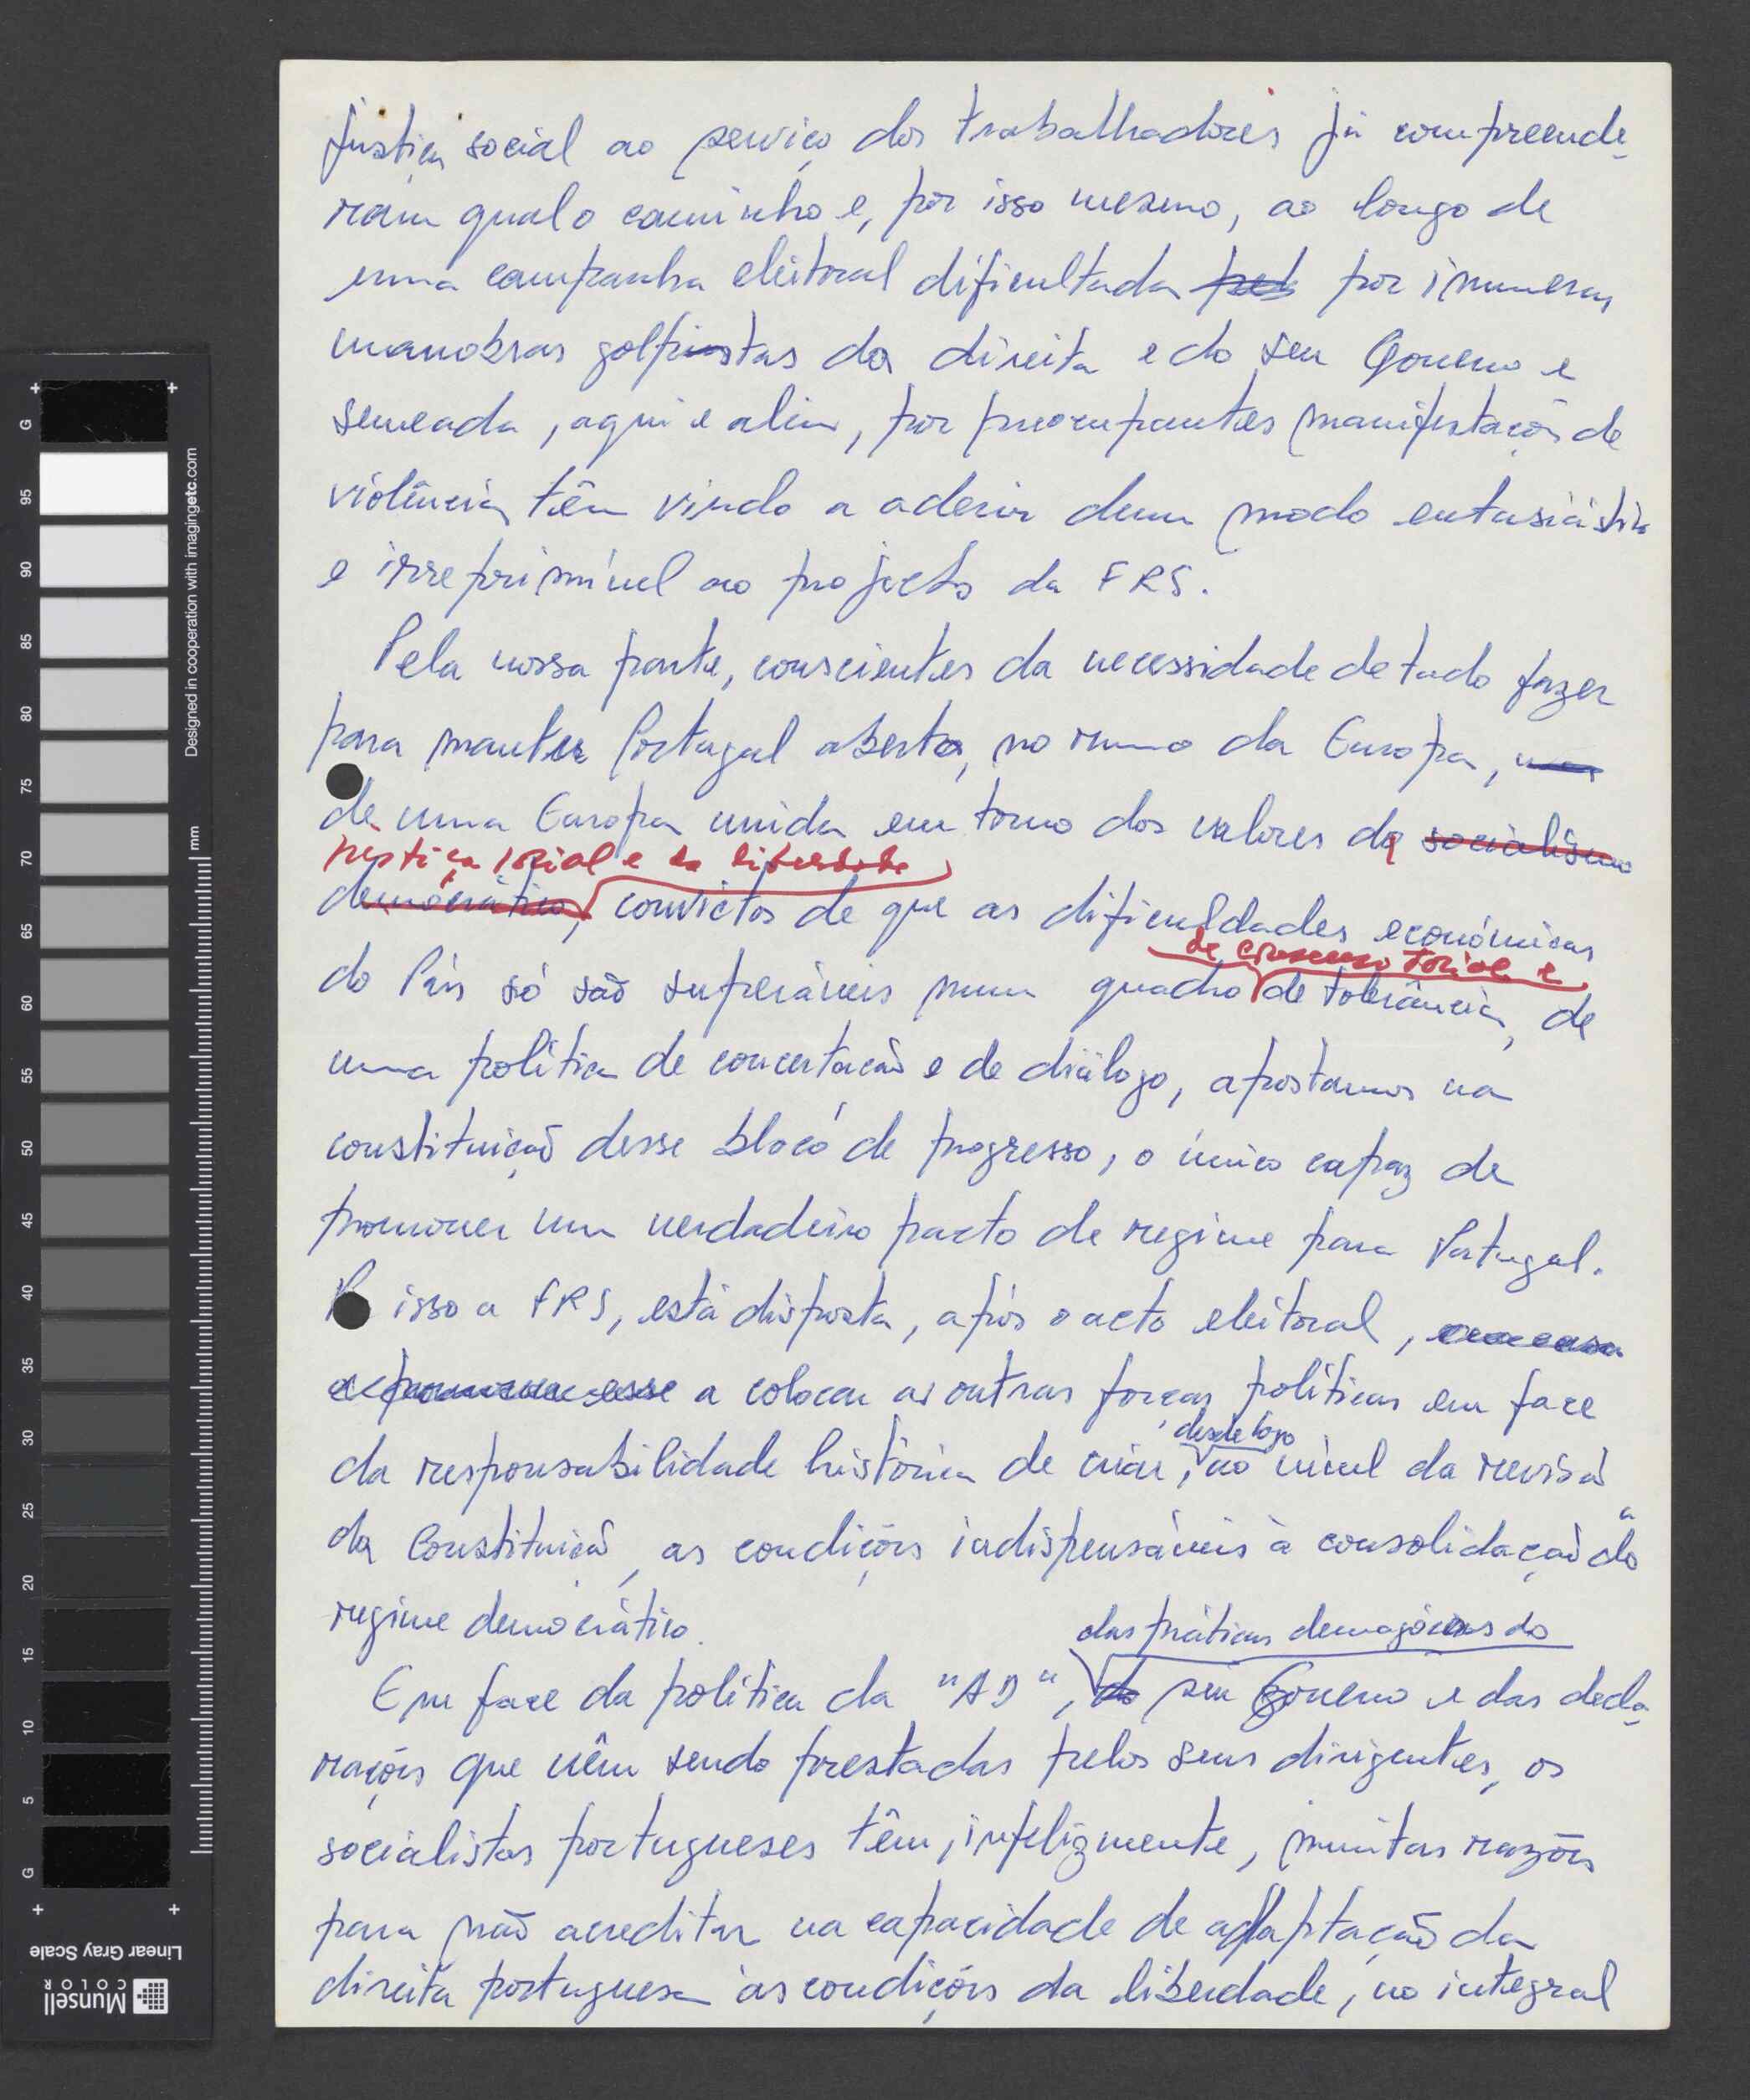 justiça social ao serviço dos trabalhadores já compreende-
ram qual o caminho e, por isso mesmo, ao longo de
uma campanha eleitoral dificultada por inumeras
manobras golpistas da direita e do seu Governo e
semeada, aqui e além, por preocupantes manifestações de
violência, têm vindo a aderir dum modo entusiástico
e irreprimível ao projecto da FRS.
Pela nossa parte, conscientes da necessidade de tudo fazer
para manter Portugal aberto, no rumo da Europa,
de uma Europa unida em torno dos valores da socialismo
justiça social e da liberdade
democrático, convictos de que as dificuldades económicas
de consenso social e
do País só são superáveis num quadro de tolerância, de
uma política de concertação e de diálogo, apostamos na
constituição desse bloco de progresso, o único capaz de
promover um verdadeiro pacto de regime para Portugal.
P isso a FRS, está disposta, após o acto eleitoral,
a colocar as outras forças políticas em face
desde logo
da responsabilidade histórica de criar, ao nível da revisão
da Constituição, as condições indispensáveis à consolidação do
regime democrático.
das práticas demagógicas do
Em face da política da "AD", do seu Governo e das decla-
rações que vêm sendo prestadas pelos seus dirigentes, os
socialistas portugueses têm, infelizmente, muitas razões
para não acreditar na capacidade de adaptação da
direita portuguesa às condições da liberdade, no integral
Designed in cooperation with imagingetc.com
mm
G 95 90 85 80 75 70 65 60 55 50 45 40 35 30 25 20 15 10 5 G
Linear Gray Scale
Munsell
COLOR